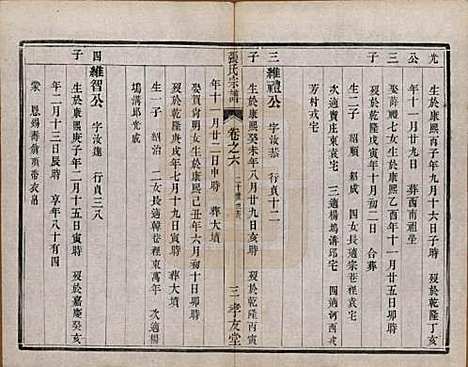 光
生於康熙丙子年九月十六日子時　歿於乾隆丁亥
公
年十一月廿九日　葬西南祖塋
三
娶蔣禮七女生於康熙乙酉年十一月廿五日卯時
子
歿於乾隆戊寅年十月初二日　合葬
生二子　紹順　紹成　四女長適宗巷裡袁宅
次適賣庄袁宅　三適楊塢溝邱宅　四適河西戎
芳村戎宅
三　維禮公　字汝恭　行貞十二
子
生於康熙癸未年八月十九日亥時　歿於乾隆丙寅
張氏宗譜
卷之六
三　孝友堂
年十一月廿二日申時　葬大墳
娶賀肯明女生於康熙己丑年六月初十日卯時
歿於乾隆庚戌年七月十九日寅時　葬大墳
生一子　紹治　二女長適韓巷裡東萬年　次適
塢溝邱光成
四　維智公　字汝清　行貞三八
子
生於康熙庚子年二月十五日寅時　歿於嘉慶癸亥
年二月十三日辰時　享年八十有四
蒙　恩錫壽翁頂帶衣帛